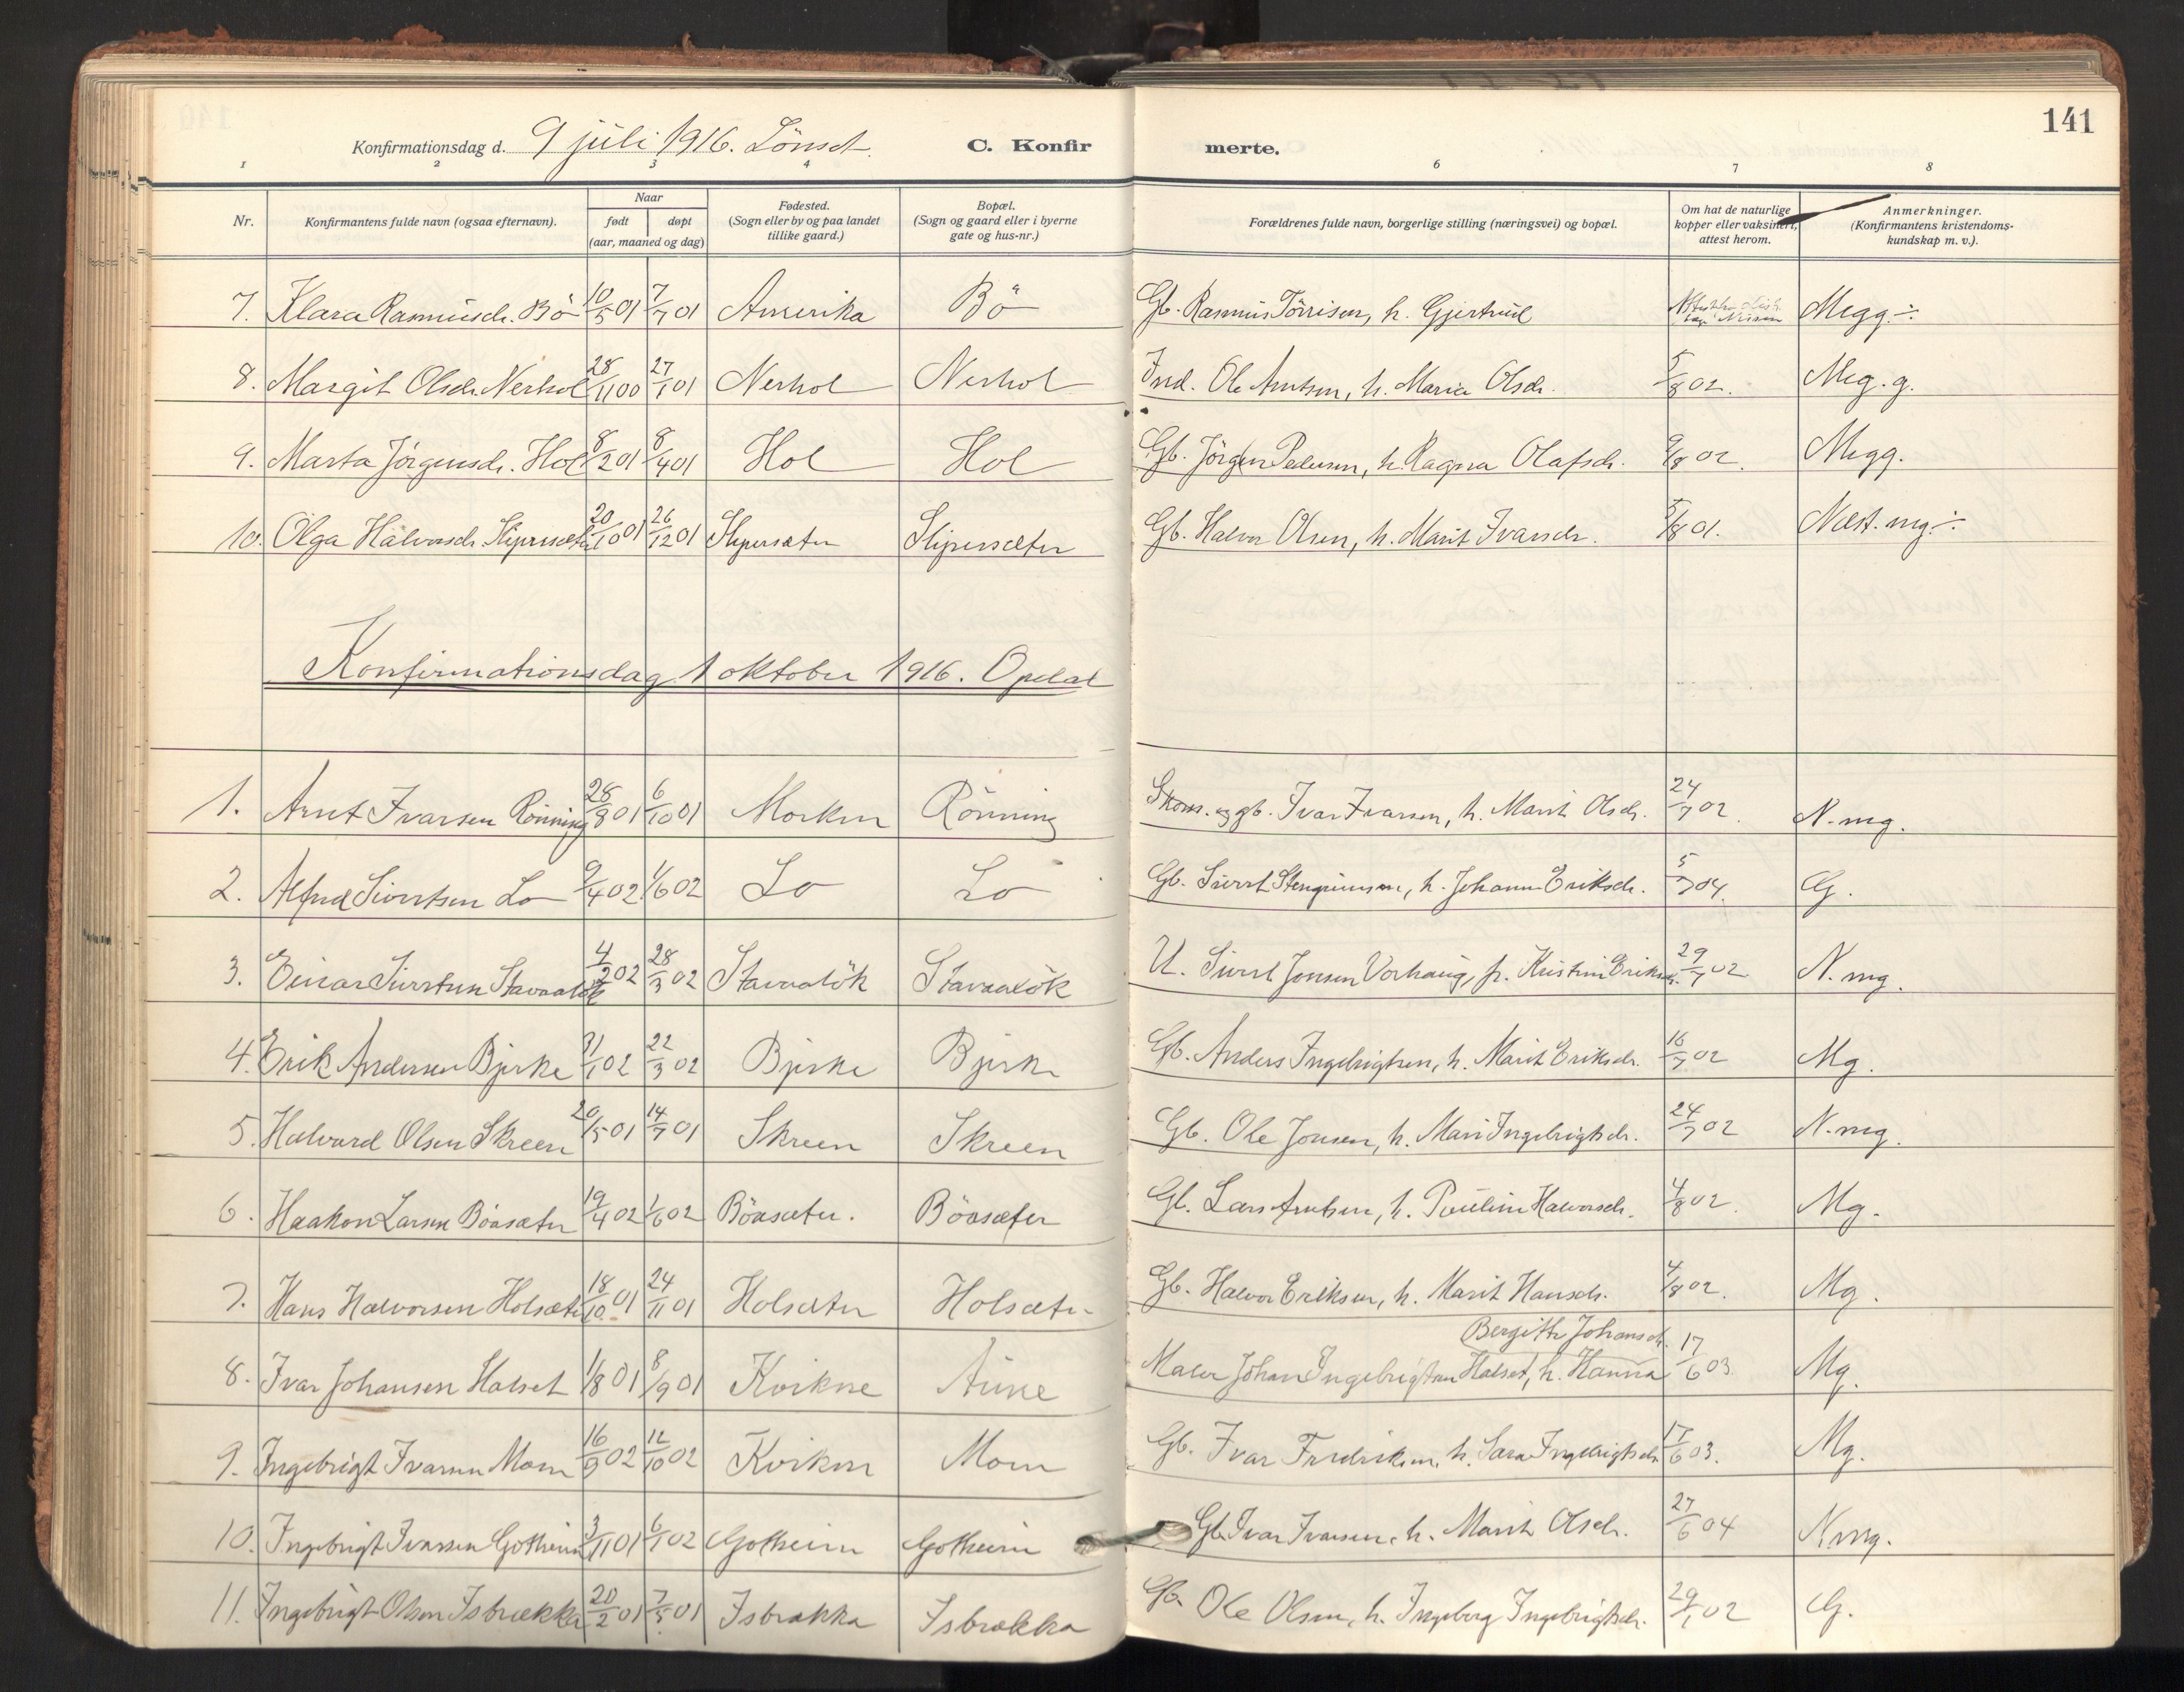 141
Konfirmationsdag d. 9 juli 1916. Lönset. C. Konfir merte.
1 2 3 4 6 7 8
Nr. Konfirmantens fulde navn (ogsaa efternavn). Naar født døpt (aar, maaned og dag) Fødested. (Sogn eller by og paa landet tillike gaard.) Bopæl. (Sogn og gaard eller i byerne gate og hus-nr.) Forældrenes fulde navn, borgerlige stilling (næringsvei) og bopæl. Om hat de naturlige kopper eller vaksinert, attest herom. Anmerkninger. (Konfirmantens kristendoms-kundskap m. v.).
7. Klara Rasmusdr. Bö 10/5 01 7/7 01 Amerika Bö Gb. Rasmus Törrisen, h. Gjertrud Megg. ÷
8. Margit Olsdr. Nerhol 28/11 00 27/1 01 Nerhol Nerhol Ind. Ole Arntsen, h. Maria Olsdr. 5/8 02. Meg. g.
9. Marta Jörgensdr. Hol 8/2 01 8/4 01 Hol Hol Gb. Jörgen Pedersen, h. Ragna Olafsdr. 9/8 02. Megg.
10. Olga Halvorsdr. Slipersæter 20/10 01 26/12 01 Slipersæter Slipersæter Gb. Halvor Olsen, h. Marit Ivarsdr. 5/8 01. Næst. mg ÷.
Konfirmationsdag 1 oktober 1916. Opdal
1. Arnt Ivarsen Rönning 28/8 01 6/10 01 Morken Rönning Skom. og gb. Ivar Ivarsen, h. Marit Olsdr. 24/7 02. N. mg.
2. Alfred Sivertsen Lo 9/4 02 1/6 02 Lo Lo Gb. Sivert Stengrimsen, h. Johanne Eriksdr. 5/7 04. G.
3. Einar Sivertsen Stavaalök 4/2 02 28/3 02 Stavaalök Stavaalök U. Sivert Jonsen Vorhaug, p. Kristine Eriksdr. 29/7 02 N. mg.
4. Erik Andersen Bjerke 31/1 02 22/3 02 Bjerke Bjerke Gb. Anders Ingebrigtsen, h. Marit Eriksdr. 16/7 02 Mg.
5. Halvard Olsen Skreen 20/5 01 14/7 01 Skreen Skreen Gb. Ole Jonsen, h. Mari Ingebrigtsdr. 24/7 02 N. mg.
6. Haakon Larsen Böasæter 19/4 02 1/6 02 Böasæter. Böasæter Gb. Lars Arntsen, h. Pauline Halvorsdr. 4/8 02. Mg.
7. Hans Halvorsen Holsæter 18/10 01 24/11 01 Holsæter Holsæter Gb. Halvor Eriksen, h. Marit Hansdr. 4/8 02. Mg.
Bergitte Johansdr.
8. Ivar Johansen Halset 1/8 01 8/9 01 Kvikne Aune Maler Johan Ingebrigtsen Halset, h. Hanna 17/6 03. Mg.
9. Ingebrigt Ivarsen Moen 16/9 02 12/10 02 Kvikne Moen Gb. Ivar Fredriksen, h. Sara Ingebrigtsdr. 17/6 03. Mg.
10. Ingebrigt Ivarsen Gotheim 3/11 01 6/1 02 Gotheim Gotheim Gb. Ivar Ivarsen, h. Marit Olsdr. 27/6 04 N. mg.
11. Ingebrigt Olsen Isbrækka 20/2 01 7/5 01 Isbrækka Isbrækka Gb. Ole Olsen, h. Ingeborg Ingebrigtsdr. 29/1 02 G.